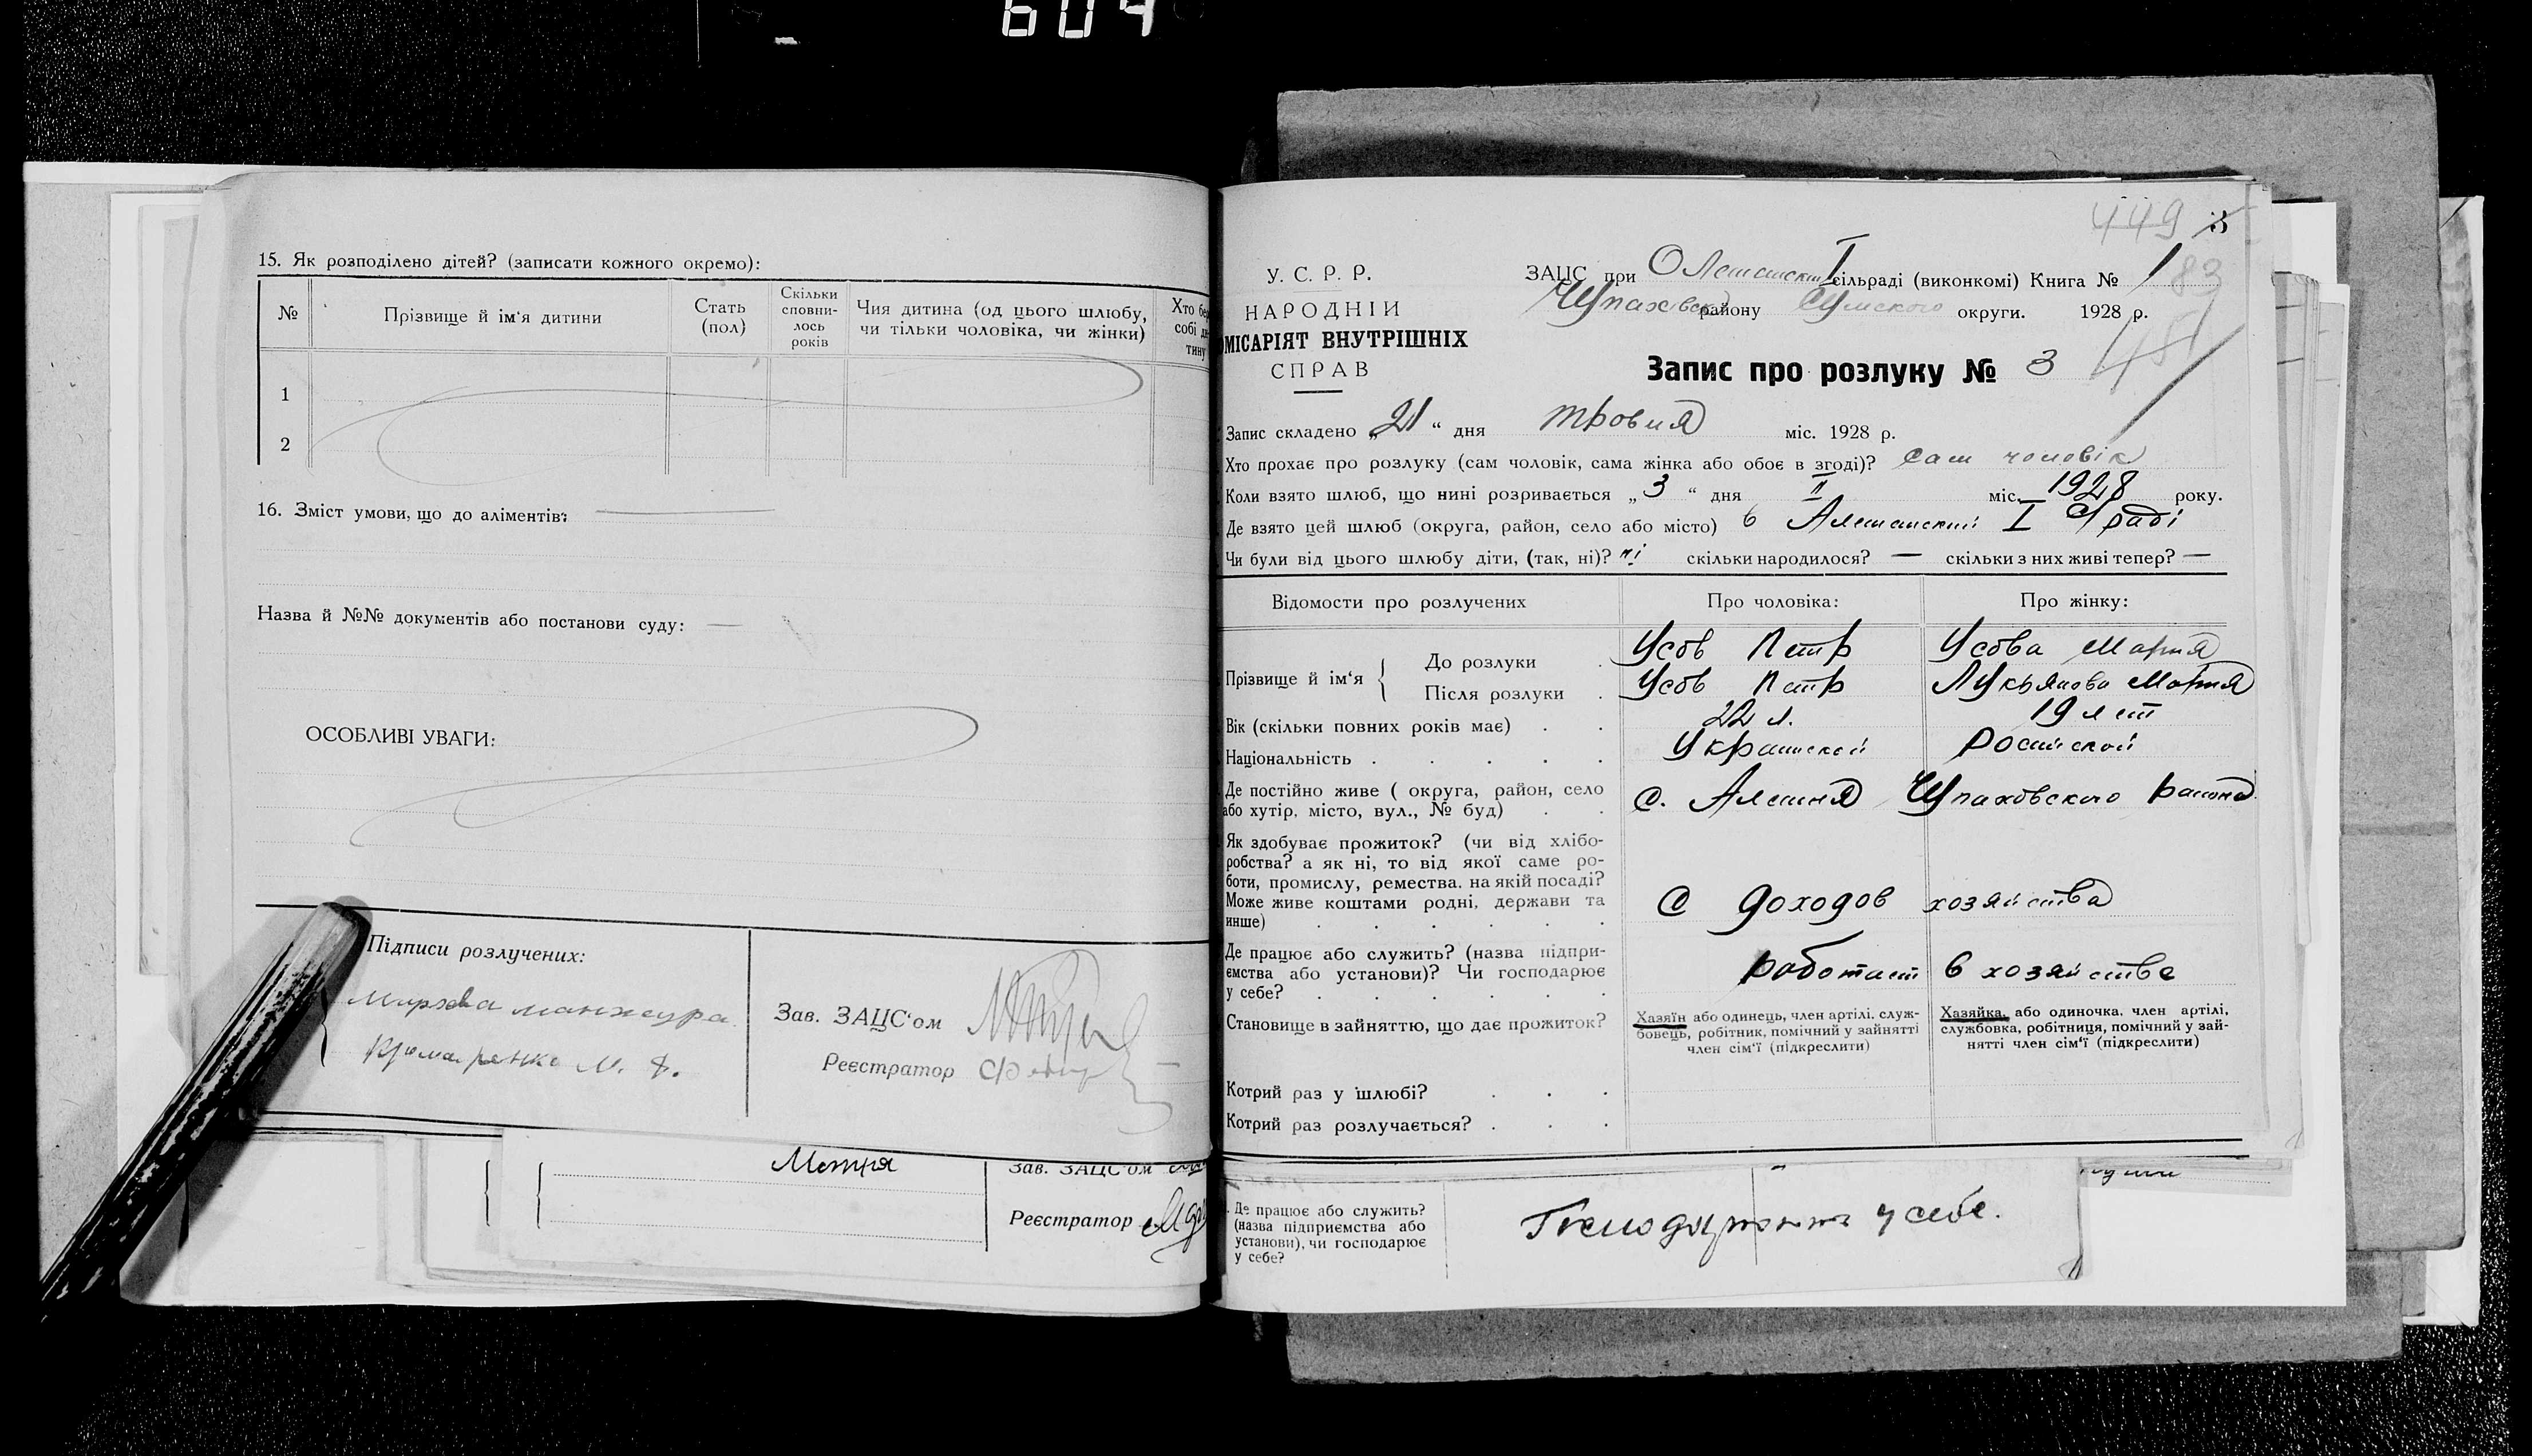 604
15. Як розподілено дітей? (записати кожного окремо):
№
Прізвище й ім‘я дитини
Стать (пол)
Скільки сповни-лось років
Чия дитина (од цього шлюбу, чи тільки чоловіка, чи жінки)
Хто бер
собі ди-
тину
1
2
16. Зміст умови, що до аліментів:
Назва й №№ документів або постанови суду:
ОСОБЛИВІ УВАГИ:
Підписи розлучених:
Крамаренко М. Ф.
Зав. ЗАЦС‘ом
Реєстратор
Мотря
Зав. ЗАЦС‘ом
Реєстратор
449 3
У. С. Р. Р.
НАРОДНІЙ
МІСАРІЯТ ВНУТРІШНІХ
СПРАВ
ЗАЦС при Олешанский I сільраді (виконкомі) Книга № 1
83
району Сумского округи. 1928 р.
Запис про розлуку № 3
Запис складено „21“ дня травня міс. 1928 р.
Хто прохає про розлуку (сам чоловік, сама жінка або обоє в згоді)? сам чоловік
Коли взято шлюб, що нині розривається „3“ дня II міс. 1928 року.
Де взято цей шлюб (округа, район, село або місто) в Алешанский I С/раді
Чи були від цього шлюбу діти, (так, ні)? ні скільки народилося? — скільки з них живі тепер? —
Відомости про розлучених
Про чоловіка:
Про жінку:
Прізвище й ім‘я
До розлуки
Усов Петр
Усова Мария
Після розлуки
Усов Петр
Лукьянова Мария
Вік (скільки повних років має)
22 л.
19 лет
Національність
Украинской
Росийской
Де постійно живе ( округа, район, село
або хутір, місто, вул., № буд)
с. Алешня Чупаховского района
Як здобуває прожиток? (чи від хлібо-
робства? а як ні, то від якої саме ро-
боти, промислу, ремества, на якій посаді?
Може живе коштами родні, держави та
инше)
С доходов хозяйства
Де працює або служить? (назва підпри-
ємства або установи)? Чи господарює
у себе?
работает в хозяйстве
Становище в зайняттю, що дає прожиток?
Хазяїн або одинець, член артілі, служ-
бовець, робітник, помічний у зайнятті
член сім‘ї (підкреслити)
Хазяйка, або одиночка, член артілі,
службовка, робітниця, помічний у зай-
нятті член сім‘ї (підкреслити)
Котрий раз у шлюбі?
Котрий раз розлучається?
Де працює або служить?
(назва підприємства або
установи), чи господарює
у себе?
у себе.